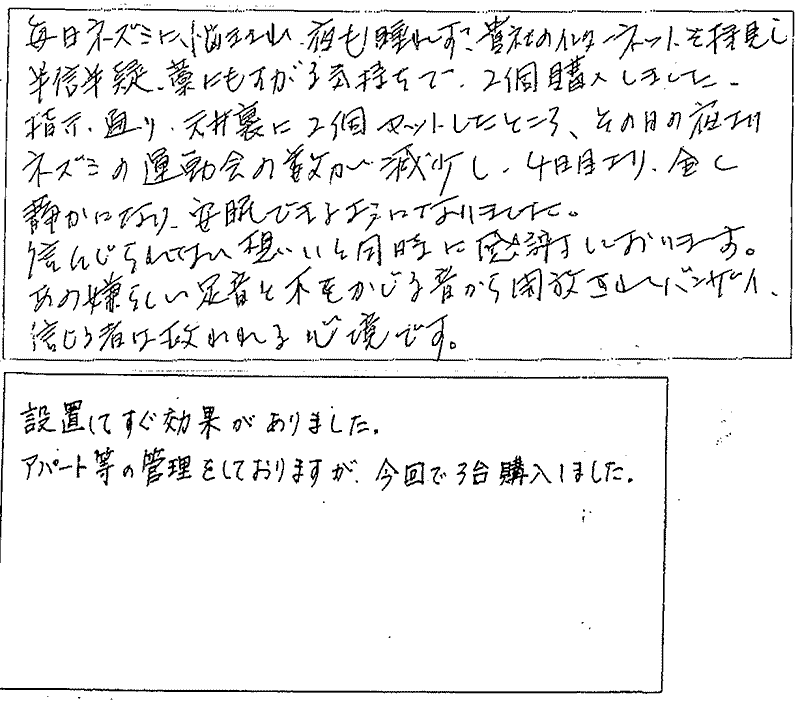 毎日ネズミに悩まされ、夜も睡れず、貴社のインターネットを拝見し
半信半疑、藁にもすがる気持ちで、2個購入しました。
指示通り、天井裏に2個セットしたところ、その日の夜より
ネズミの運動会の数が減少し、4日目より、全く
静かになり、安眠できるようになりました。
信じられない想いと同時に感謝しております。
あの嫌らしい足音と木をかじる音から開放されバンザイ、
信じる者は救われる心境です。
設置してすぐ効果がありました。
アパート等の管理をしておりますが、今回で3台購入しました。